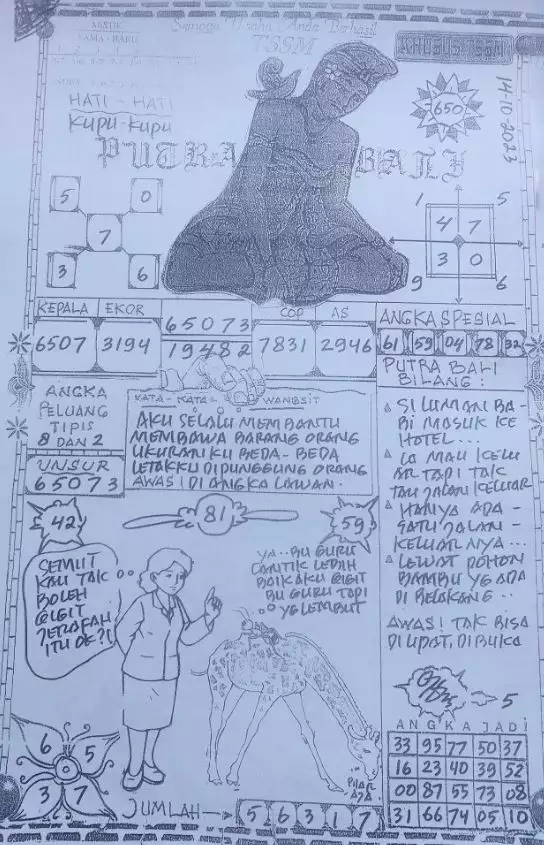 MISTIK
LAMA - BARU
Semoga Usaha Anda Berhasil
TSSM
KHUSUS TSSM
HATI - HATI
KUPU-KUPU
650
14-10-2023
PUTRA BALI
5 0
7
3 6
1 5
4 7
3 0
9 6
KEPALA EKOR
6507 3194
65073
19482
COP AS
7831 2946
ANGKA SPESIAL
61 59 04 78 32
ANGKA
PELUANG
TIPIS
8 DAN 2
UNSUR
65073
KATA - KATA = WANGSIT
AKU SELALU MEMBANTU
MEMBAWA BARANG ORANG
UKURANKU BEDA - BEDA
LETAKKU DIPUNGGUNG ORANG
AWAS! DI ANGKA LAWAN.
PUTRA BALI
BILANG :
SILUMAN BA-
BI MASUK KE
HOTEL...
IA MAU KELU
AR TAPI TAK
TAU JALAN KELUAR
HANYA ADA -
SATU JALAN -
KELUARNYA...
LEWAT POHON
BAMBU YG ADA
DI BELAKANG..
AWAS! TAK BISA
DILIPAT, DIBUKA
42
81
59
SEMUT
KAU TAK
BOLEH
GIGIT
JERAFAH
ITU OK?!
YA.. BU GURU
CANTIK LEBIH
BAIK AKU GIGIT
BU GURU TAPI
YG LEMBUT
5
6 5
3 7
JUMLAH
5 6 3 1 7
ANGKA JADI
33 95 77 50 37
16 23 40 39 52
00 87 55 73 08
31 66 74 05 10